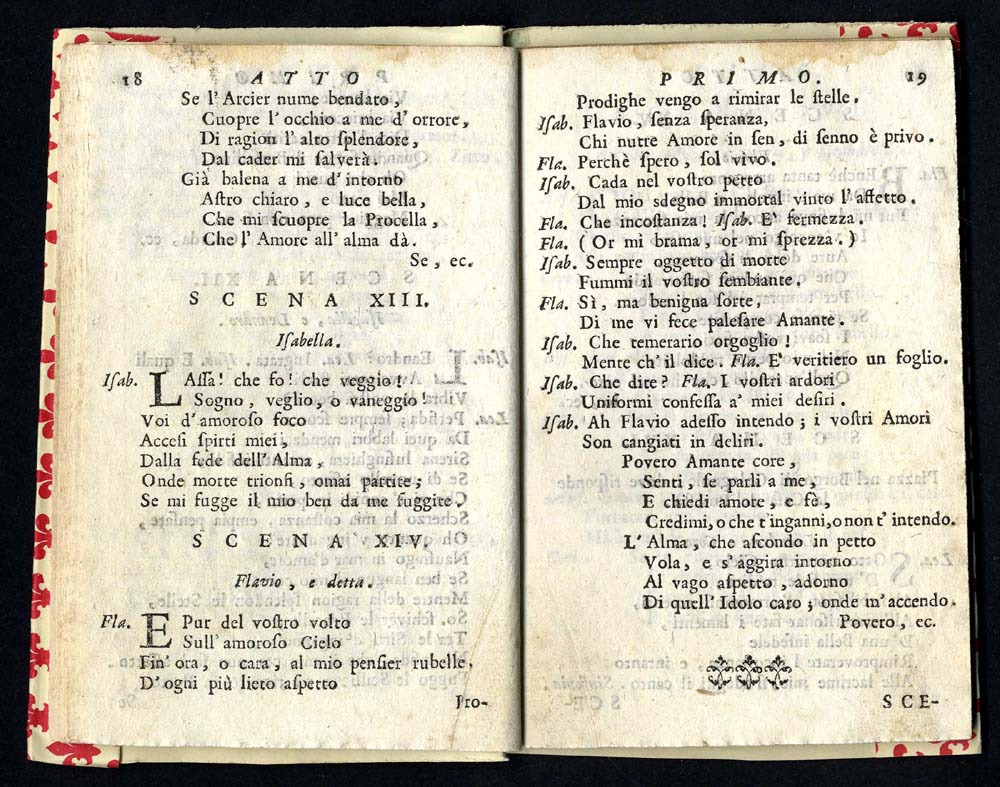 18 ATTO
Se l' Arcier nume bendato,
Cuopre l' occhio a me d' orrore,
Di ragion l' alto ſplendore,
Dal cader mi ſalverà.
Già balena a me d' intorno
Aſtro chiaro, e luce bella,
Che mi ſcuopre la Procella,
Che l' Amore all' alma dà.
Se, ec.
SCENA XIII.
Iſabella.
Iſab. LAſſa! che fo! che veggio!
Sogno, veglio, o vaneggio!
Voi d'amoroso foco
Acceſi ſpirti miei,
Dalla ſede dell' Alma,
Onde morte trionfi, omai partite;
Se mi fugge il mio ben da me fuggite.
SCENA XIV.
Flavio, e detta.
Fla. E Pur del voſtro volto
Sull' amoroſo Cielo
Fin' ora, o cara, al mio penſier rubelle,
D' ogni più lieto aſpetto
Pro-
PRIMO. 19
Prodighe vengo a rimirar le ſtelle.
Iſab. Flavio, ſenza ſperanza,
Chi nutre Amore in ſen, di ſenno è privo.
Fla. Perchè ſpero, ſol vivo.
Iſab. Cada nel voſtro petto
Dal mio sdegno immortal vinto l' affetto.
Fla. Che incoſtanza! Iſab. E' fermezza.
Fla. (Or mi brama, or mi ſprezza.)
Iſab. Sempre oggetto di morte
Fummi il voſtro ſembiante.
Fla. Sì, ma benigna ſorte,
Di me vi fece paleſare Amante.
Iſab. Che temerario orgoglio!
Mente ch' il dice. Fla. E' veritiero un foglio.
Iſab. Che dite? Fla. I voſtri ardori
Uniformi confeſſa a' miei deſiri.
Iſab. Ah Flavio adeſſo intendo; i voſtri Amori
Son cangiati in deliri.
Povero Amante core,
Senti, ſe parli a me,
E chiedi amore, e fè,
Credimi, o che t'inganni, o non t' intendo.
L' Alma, che aſcondo in petto
Vola, e s' aggira intorno
Al vago aſpetto, adorno
Di quell' Idolo caro; onde m' accendo.
Povero, ec.
SCE-